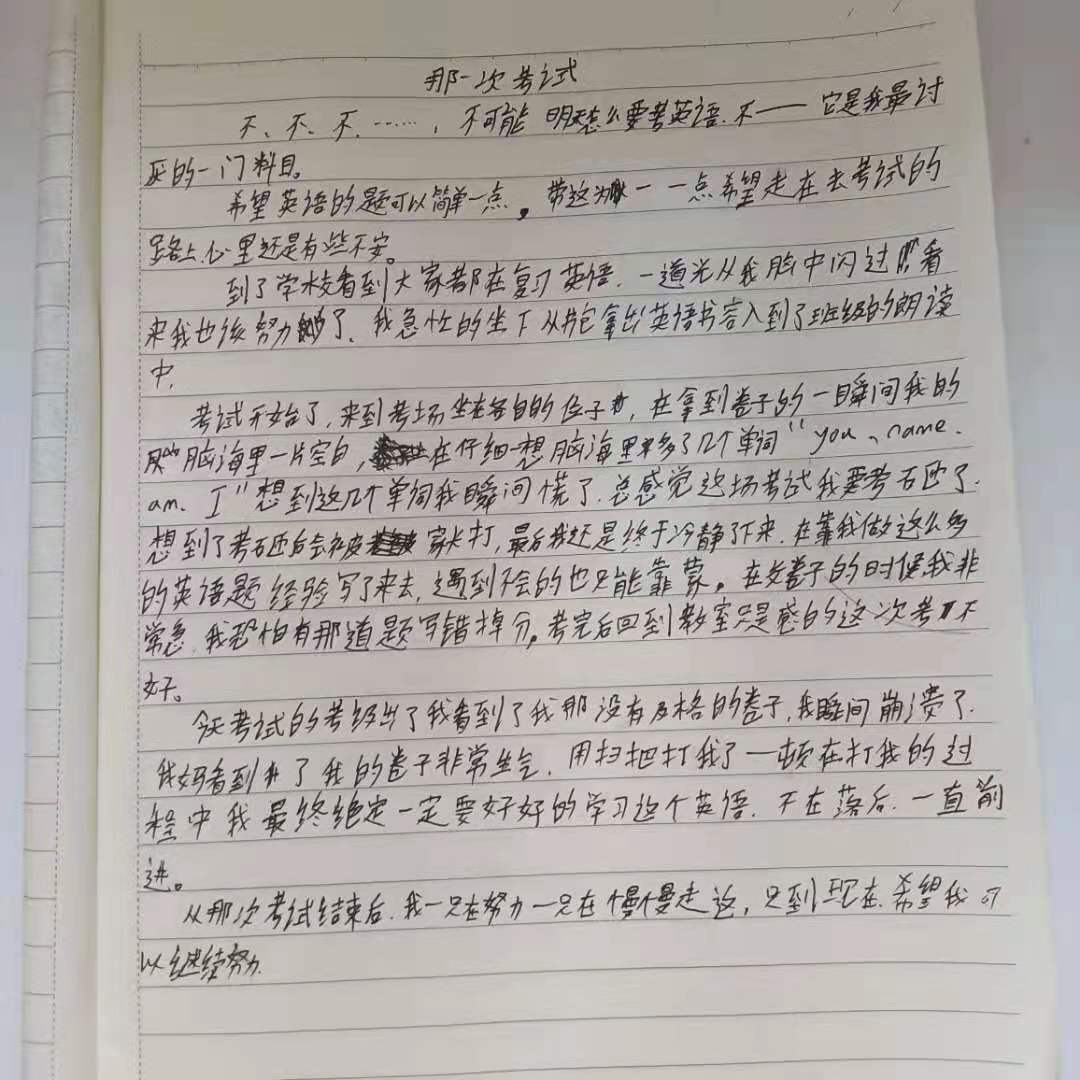 那一次考试
不、不、不、……，不可能 明天怎么要考英语.不——它是我最讨
厌的一门科目。
希望英语的题可以简单一点。带这为一一点希望走在去考试的
路上.心里还是有些不安。
到了学校看到大家都在复习英语.一道光从我脑中闪过"看
来我也该努力了.我急忙的坐下从书包拿出英语书容入到了班级的朗读
中.
考试开始了,来到考场坐在各自的位子,在拿到卷子的一瞬间我的
脑海里一片空白,在仔细一想脑海里多了几个单词"you、name.
am. I"想到这几个单词我瞬间慌了.总感觉这场考试我要考砸了.
想到了考砸后会被家长打,最后我还是终于冷静了下来.在靠我做这么多
的英语题经验写了来去,遇到不会的也只能靠蒙。在交卷子的时候我非
常急.我恐怕有那道题写错掉分。考完后回到教室只是感的这次考不
好。
考试的考级出了我看到了我那没有及格的卷子,我瞬间崩溃了.
我妈看到了我的卷子非常生气.用扫把打我了一顿在打我的过
程中我最终绝定一定要好好的学习这个英语.不在落后.一直前
进。
从那次考试结束后.我一只在努力一只在慢慢走这,只到现在.希望我可
以继续努力.